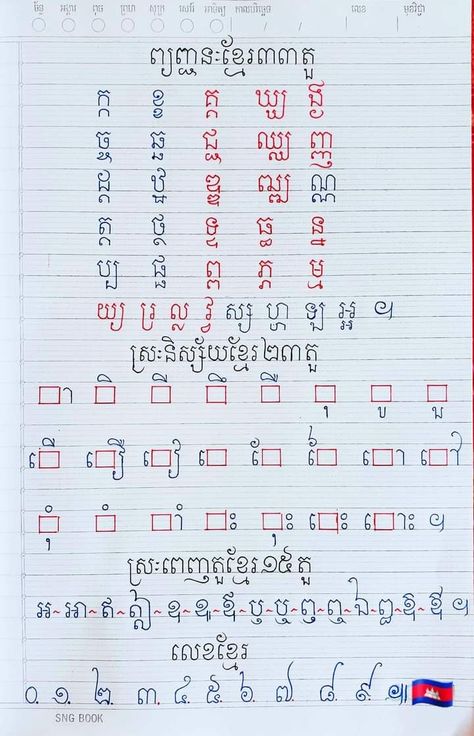 ច័ន្ទ អង្គារ ពុធ ព្រហ សុក្រ សៅរ៍ អាទិត្យ កាលបរិច្ឆេទ / / លេខ មុខវិជ្ជា
ព្យញ្ជនៈខ្មែរ៣៣តួ
ក្ក ខ្ខ គ្គ ឃ្ឃ ង្ង
ច្ច ឆ្ឆ ជ្ជ ឈ្ឈ ញ្ញ
ដ្ដ ឋ្ឋ ឌ្ឌ ឍ្ឍ ណ្ណ
ត្ត ថ្ថ ទ្ទ ធ្ធ ន្ន
ប្ប ផ្ផ ព្ព ភ្ភ ម្ម
យ្យ រ្រ ល្ល វ្វ ស្ស ហ្ហ ឡ អ្អ ៕
ស្រៈនិស្ស័យខ្មែរ២៣តួ
□ា □ិ □ី □ឹ □ឺ □ុ □ូ □ួ
□ើ □ឿ □ៀ □េ □ែ □ៃ □ោ □ៅ
□ុំ □ំ □ាំ □ះ □ុះ □េះ □ោះ ៕
ស្រៈពេញតួខ្មែរ១៥តួ
អ~អា~ឥ~ឦ~ឧ~ឩ~ឪ~ឫ~ឬ~ឭ~ឮ~ឯ~ឰ~ឱ~ឳ ៕
លេខខ្មែរ
០. ១. ២. ៣. ៤. ៥. ៦. ៧ ៨ ៩ ៕
SNG BOOK